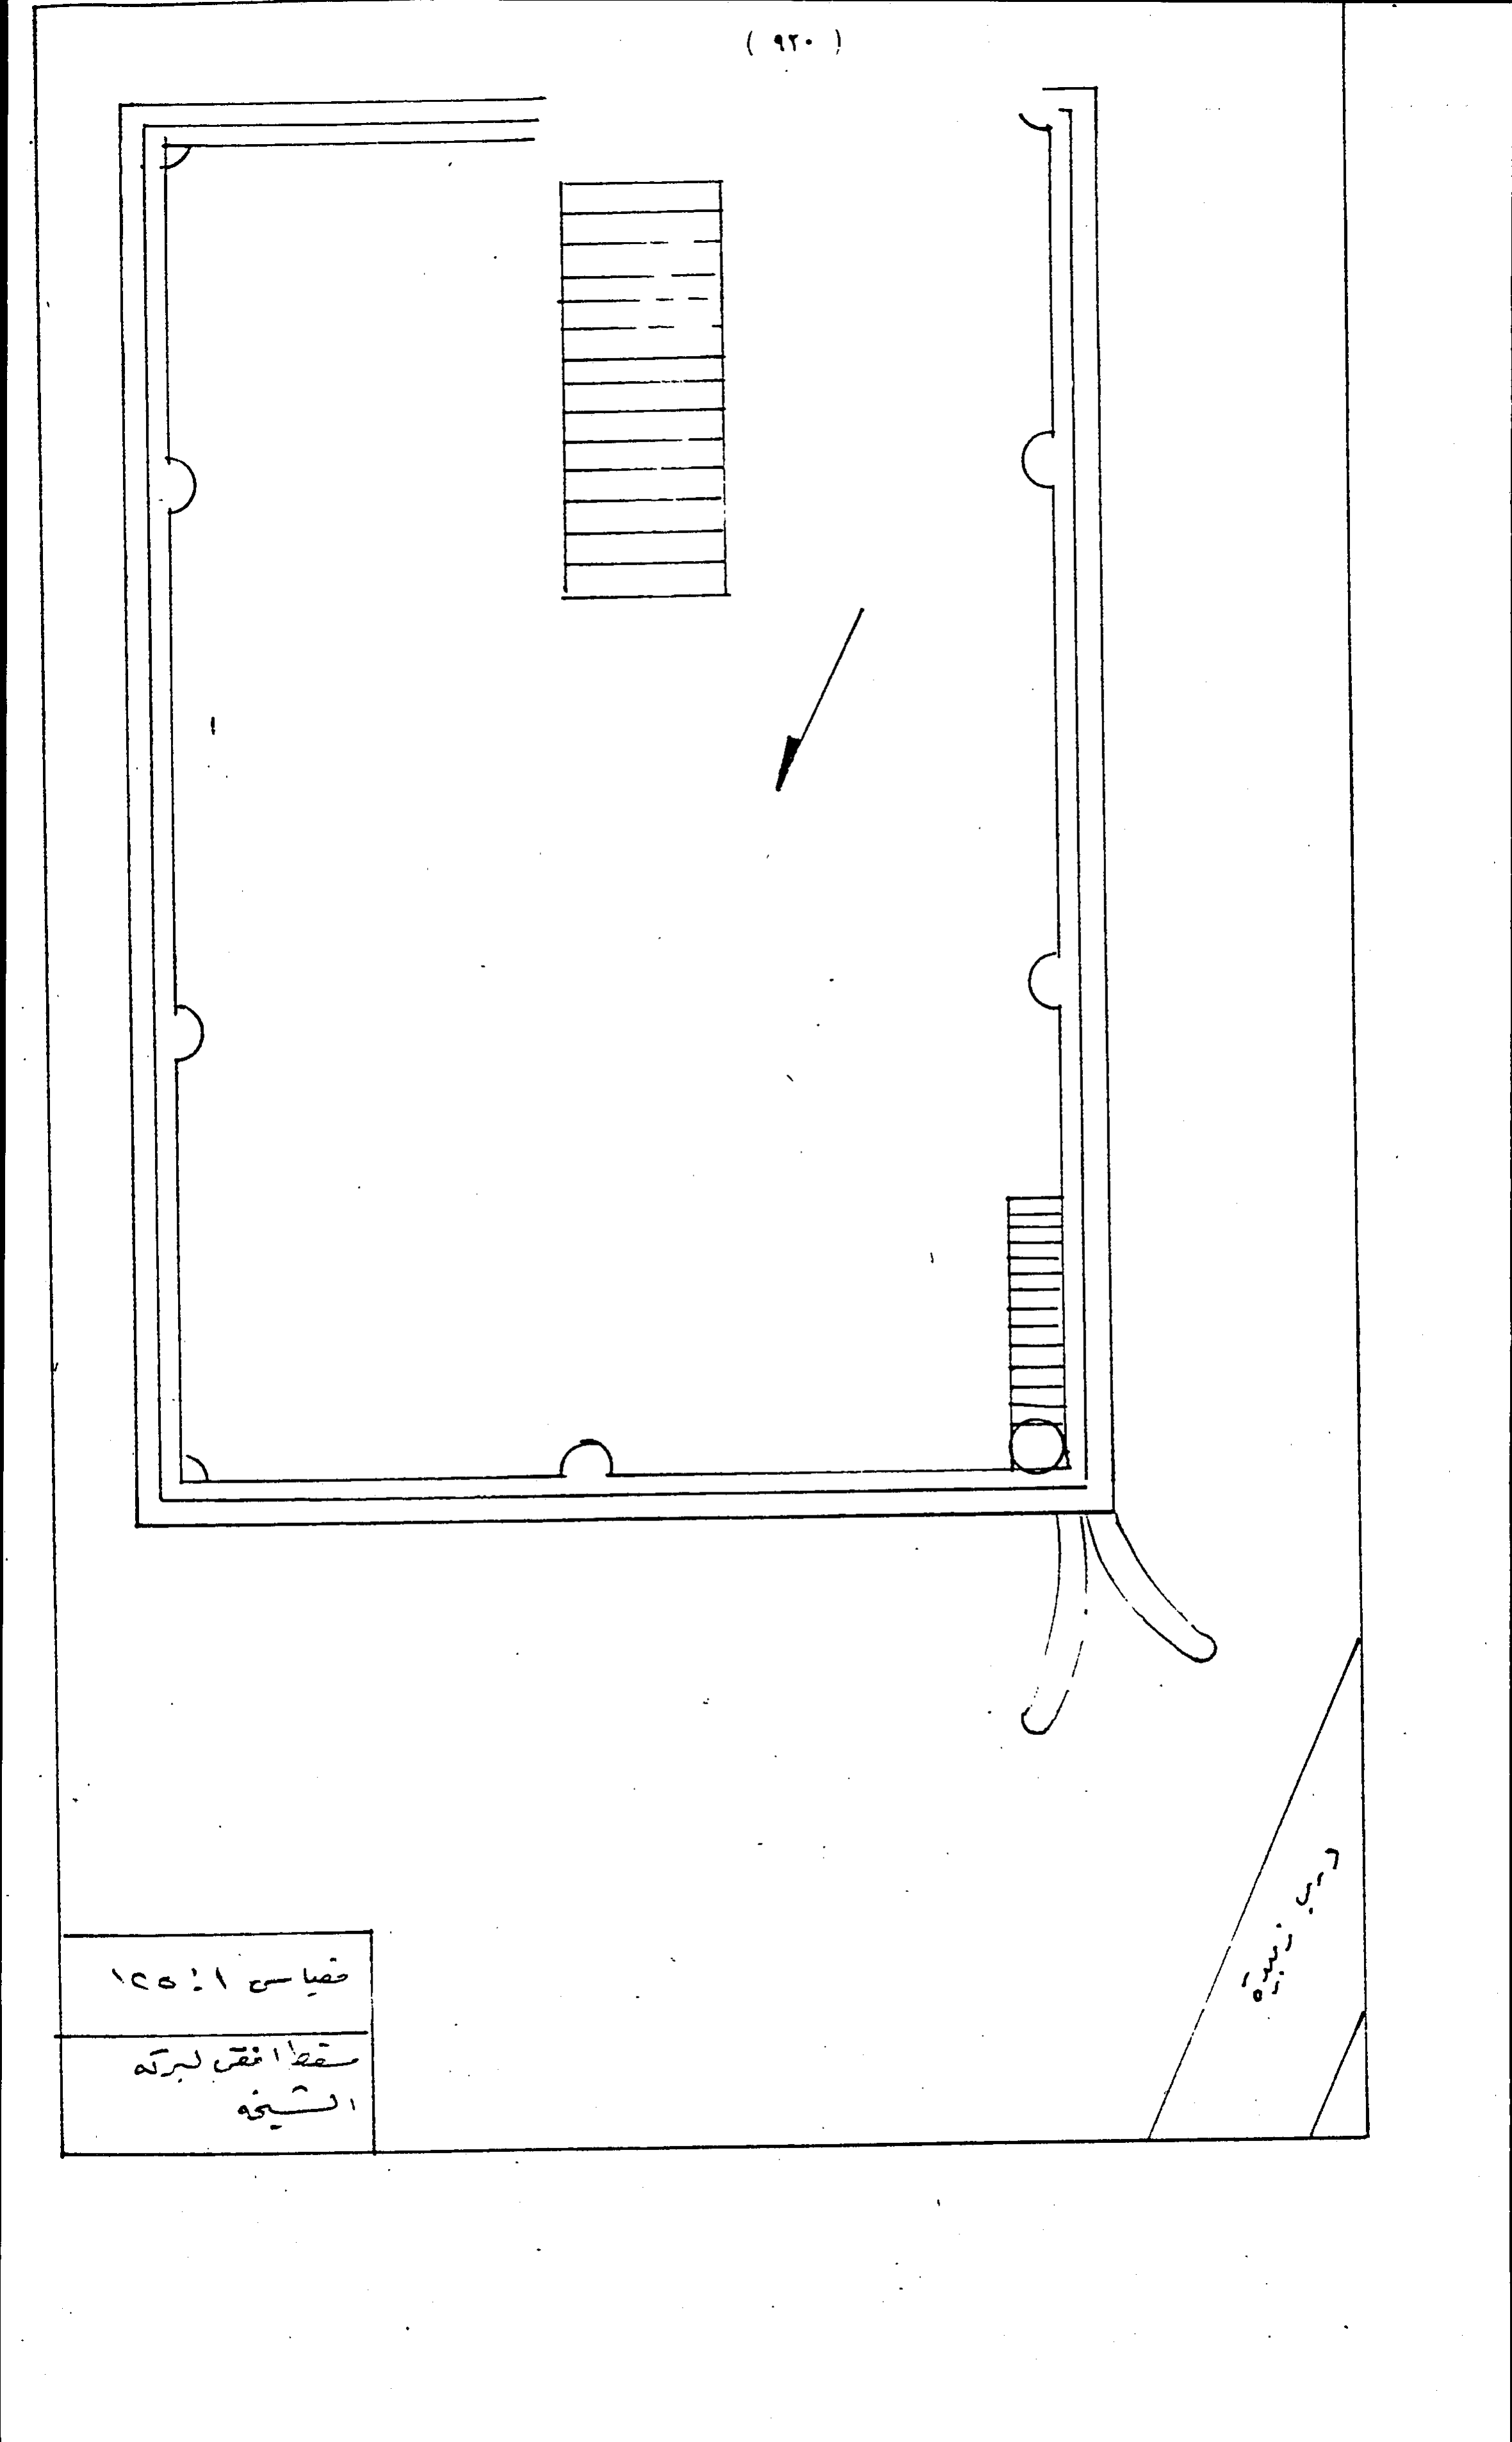 ( ٩٢٠ )
درب زبيدة
مقياس ١:١٢٥
مسقط افقى لبركه
الشيخه